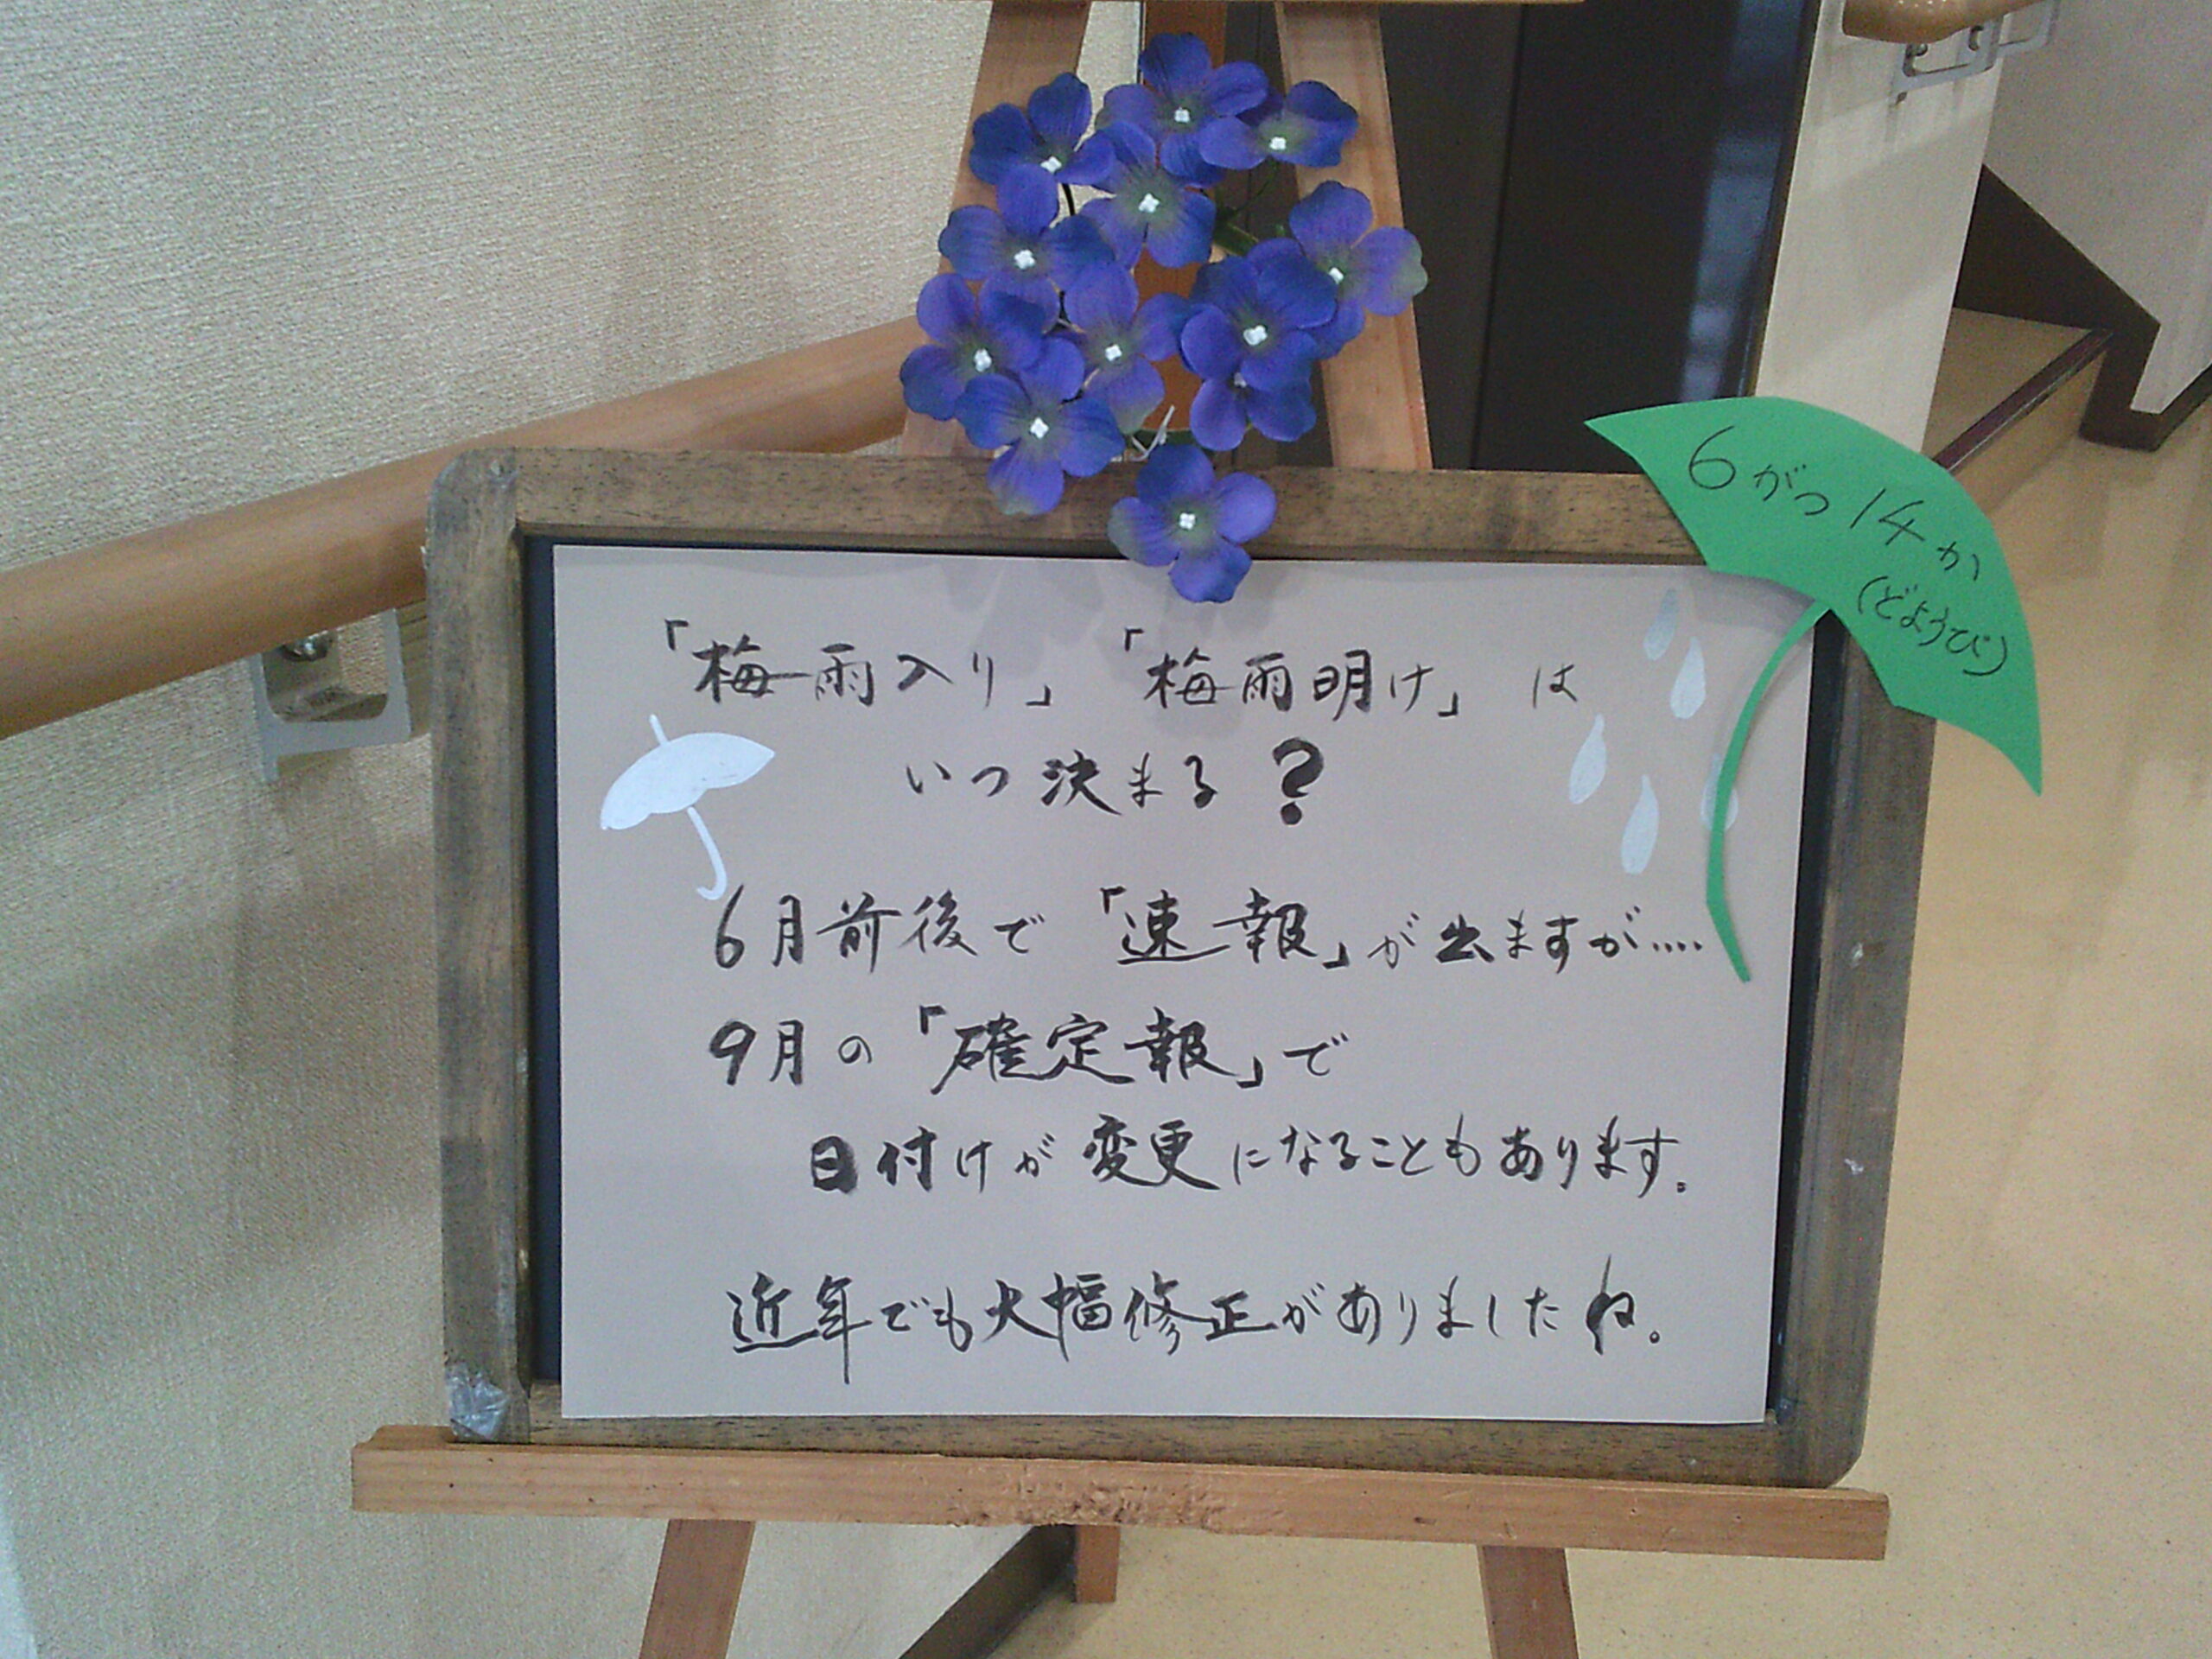 6がつ14か
(どようび)
「梅雨入り」「梅雨明け」は
いつ決まる?
6月前後で「速報」が出ますが....
9月の「確定報」で
日付けが変更になることもあります。
近年でも大幅修正がありましたね。